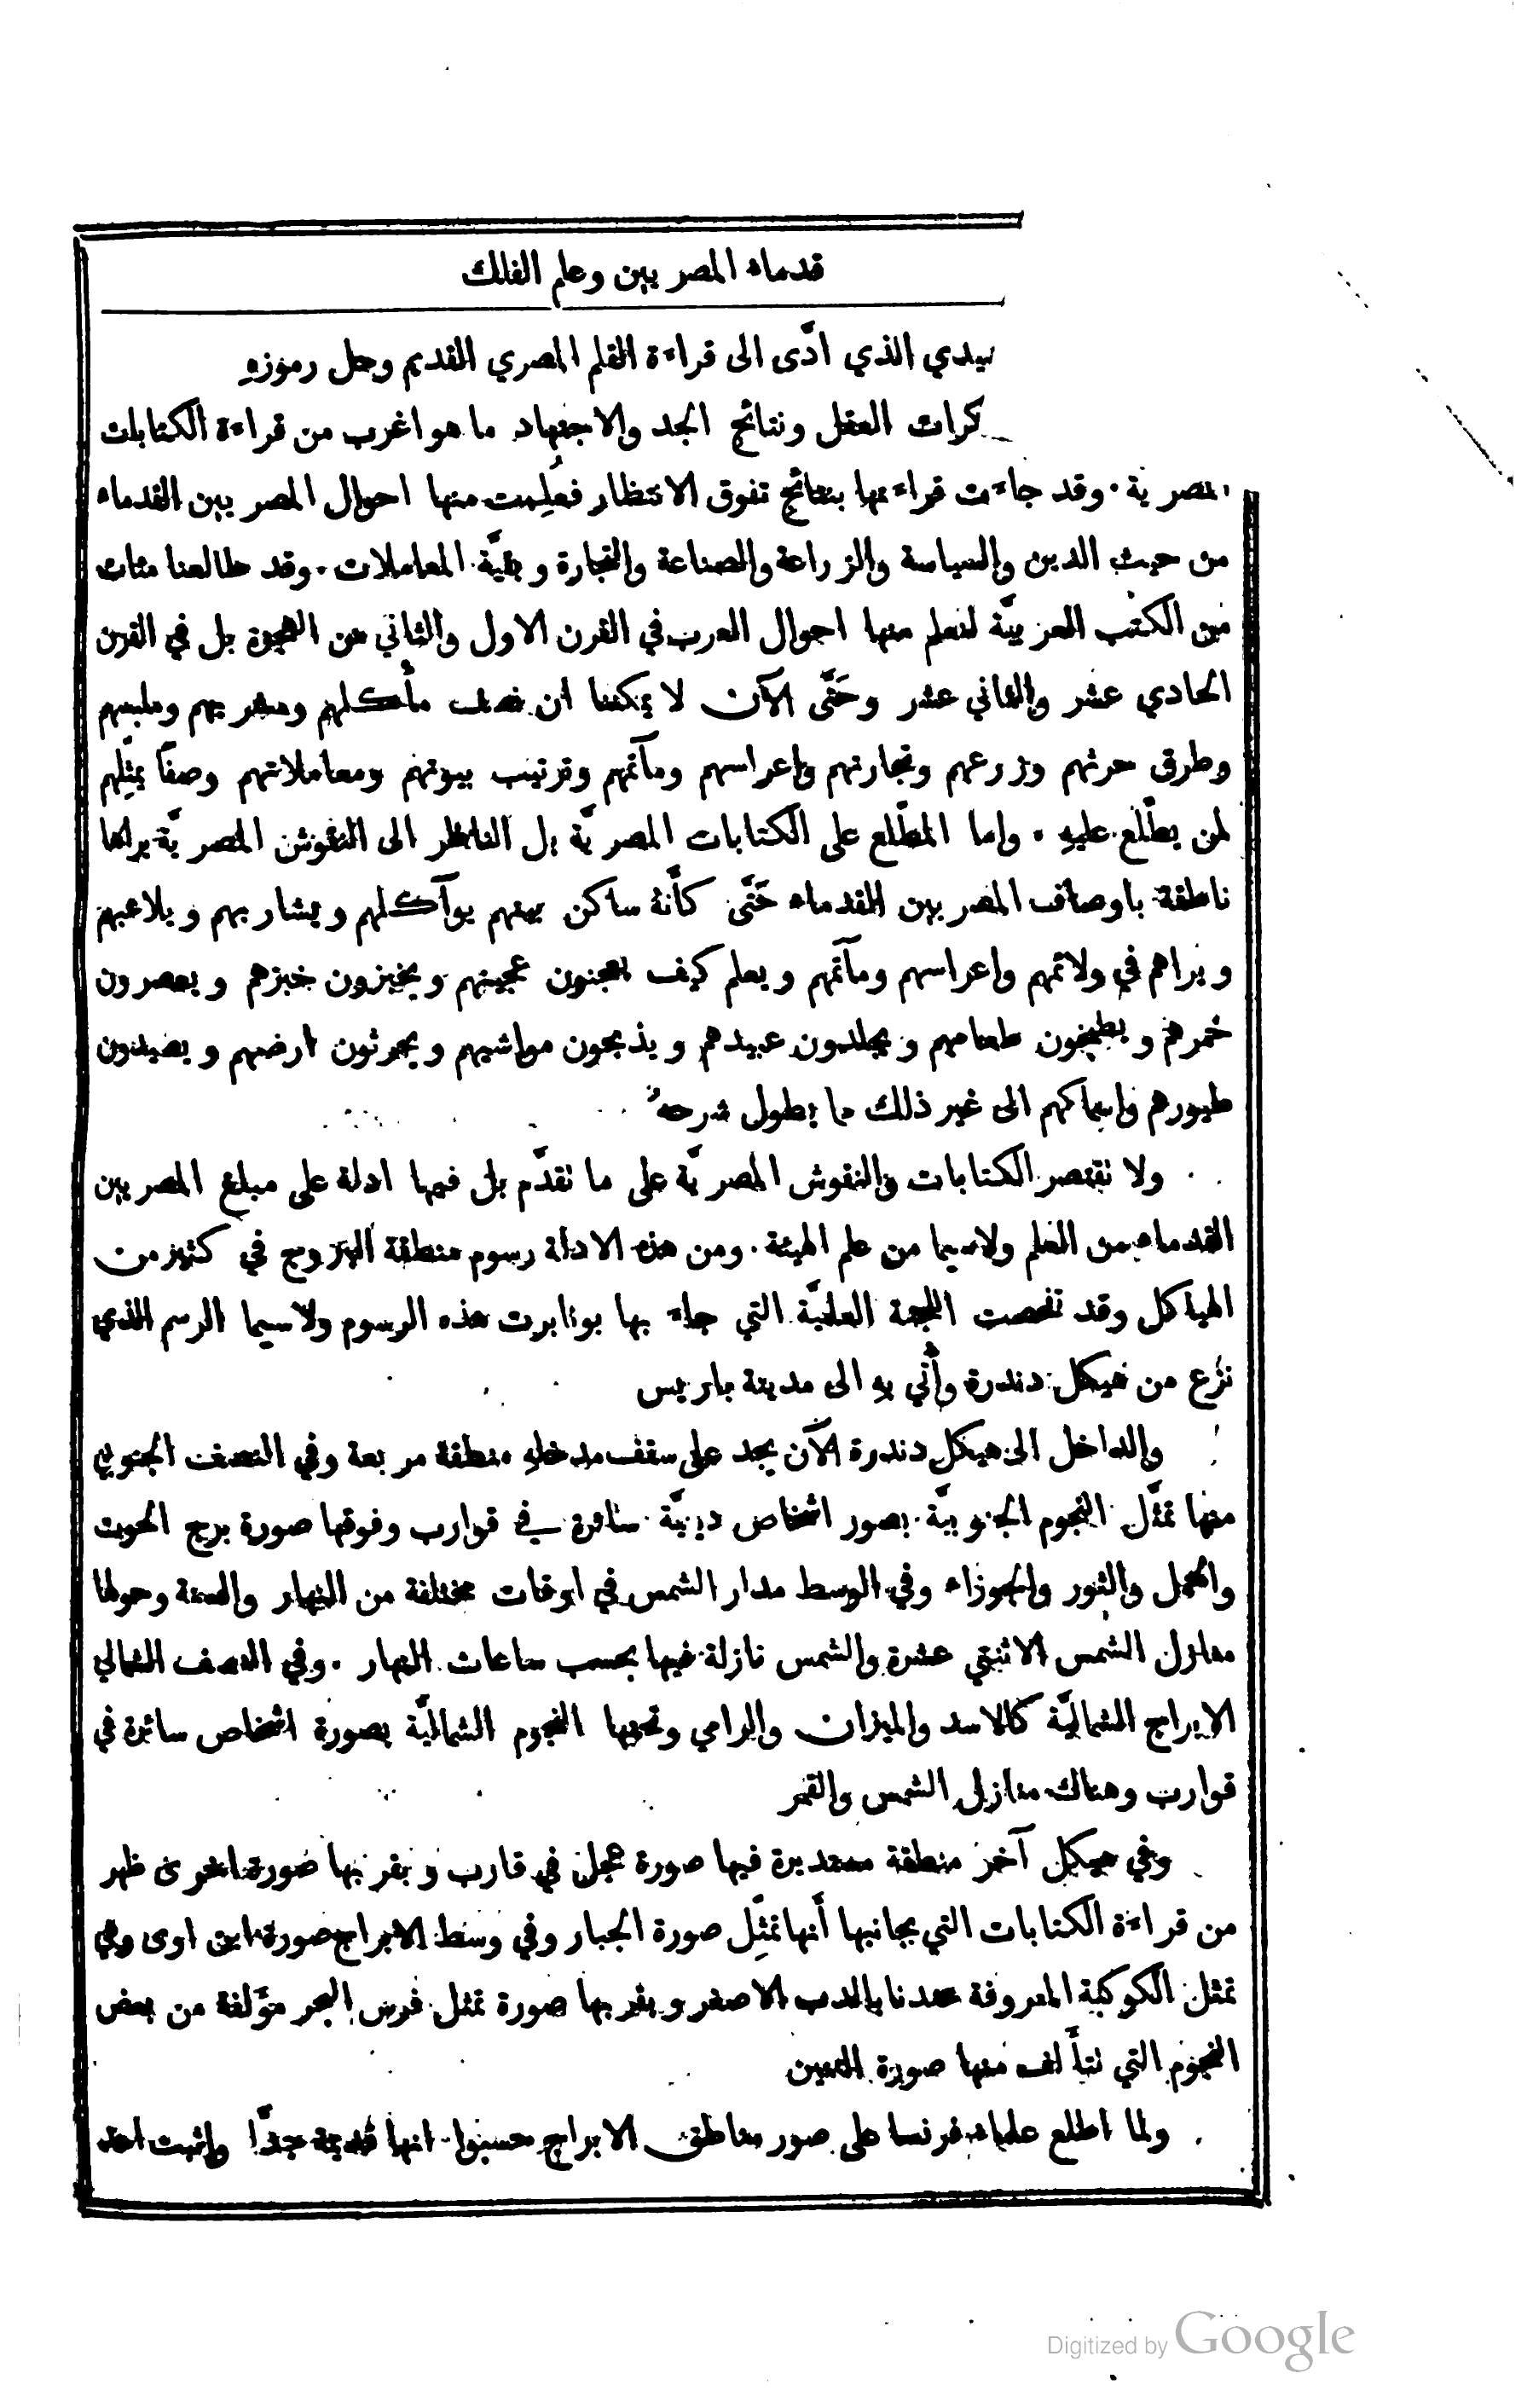 قدماء المصريين وعلم الفلك
الذي ادَّى الى قراءة القلم المصري القديم وحل رموزهِ
العقل ونتائج الجد والاجتهاد ما هو اغرب من قراءة الكتابات
المصرية. وقد جاءت قراءتها بنتائج تفوق الانتظار فعُلِمت منها احوال المصريين القدماء
من حيث الدين والسياسة والزراعة والصناعة والتجارة وبقيَّة المعاملات. وقد طالعنا مئات
من الكتب العربيَّة لنعلم منها احوال العرب في القرن الاول والثاني من الهجرة بل في القرن
الحادي عشر والثاني عشر وحَتَّى الآن لا يمكننا ان نصف مأكلهم ومشربهم وملبسهم
وطرق حرثهم وزرعهم وتجارتهم واعراسهم ومآتمهم وترتيب بيوتهم ومعاملاتهم وصفًا يمثّلهم
لمن يطّلع عليهِ. واما المطّلع على الكتابات المصريَّة بل الناظر الى النقوش المصريَّة يراها
ناطقة باوصاف المصريين القدماء حَتَّى كأَنَّهُ ساكن بينهم يوآكلهم ويشاربهم ويلاعبهم
ويراهم في ولائمهم واعراسهم ومآتمهم ويعلم كيف يعجنون عجينهم ويخبزون خبزهم ويعصرون
خمرهم ويطبخون طعامهم ويجلدون عبيدهم ويذبحون مواشيهم ويحرثون ارضهم ويصيدون
طيورهم واسماكهم الى غير ذلك مما يطول شرحهُ
ولا تقتصر الكتابات والنقوش المصريَّة على ما تقدَّم بل فيها ادلة على مبلغ المصريين
القدماء من العلم ولاسيما من علم الهيئة. ومن هذه الادلة رسوم منطقة البروج في كثير من
الهياكل وقد تفحصت اللجنة العلميَّة التي جاء بها بونابرت هذه الرسوم ولاسيما الرسم الذي
نزع من هيكل دندرة وأُتي بهِ الى مدينة باريس
والداخل الى هيكل دندرة الآن يجد على سقف مدخلهِ منطقة مربعة وفي النصف الجنوبي
منها تمثَّل النجوم الجنوبيَّة بصور اشخاص دينيَّة سائرة في قوارب وفوقها صورة برج الحوت
والحمل والثور والجوزاء وفي الوسط مدار الشمس في اوقات مختلفة من النهار والسنة وحولها
منازل الشمس الاثنتي عشرة والشمس نازلة فيها بحسب ساعات النهار. وفي النصف الشمالي
الابراج الشماليَّة كالاسد والميزان والرامي وتحتها النجوم الشماليَّة بصورة اشخاص سائرة في
قوارب وهناك منازل الشمس والقمر
وفي هيكل آخر منطقة مستديرة فيها صورة عجل في قارب وبقربها صورة اخرى ظهر
من قراءة الكتابات التي بجانبها أَنها تمثِّل صورة الجبار وفي وسط الابراج صورة ابن اوى وهي
تمثل الكوكبة المعروفة عندنا بالدب الاصغر وبقربها صورة تمثل فرس البحر مؤَلفة من بعض
النجوم التي تتأَلف منها صورة التنين
ولما اطلع علماء فرنسا على صور مناطق الابراج حسبوا انها قديمة جدًّا واثبت احد
Digitized by Google